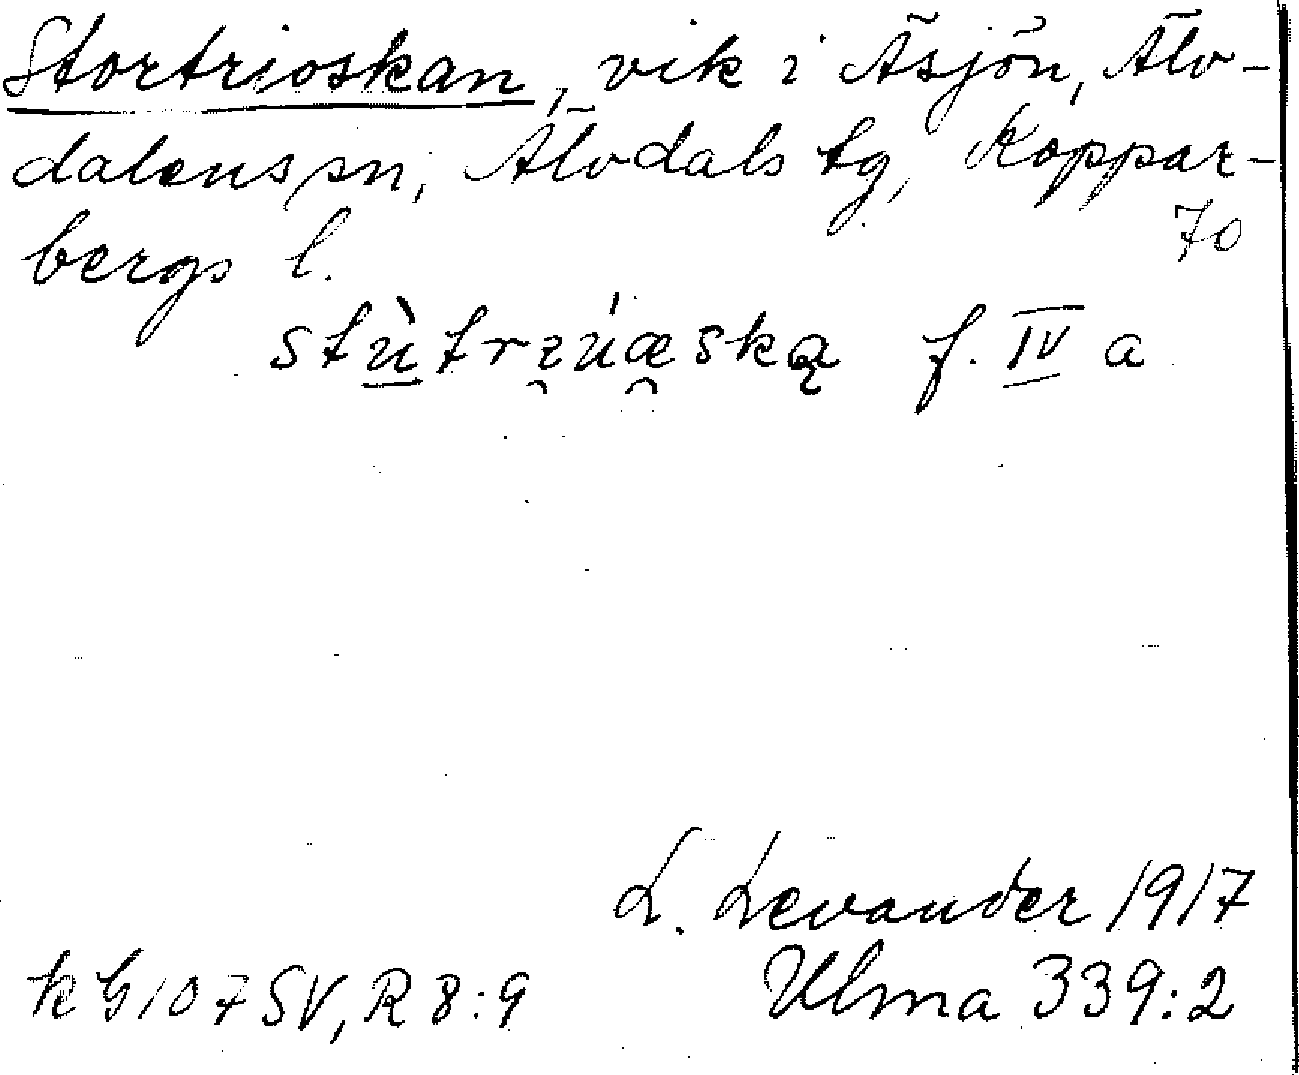 Stortrioskan, vik i Åsjön, Älv-
dalens sn, Älvdals tg, Koppar-
bergs l.
70
stùtrı̯úæ̯ską f. IV a
L. Levander 1917
k G 107 SV, R 8:9
Ulma 339:2